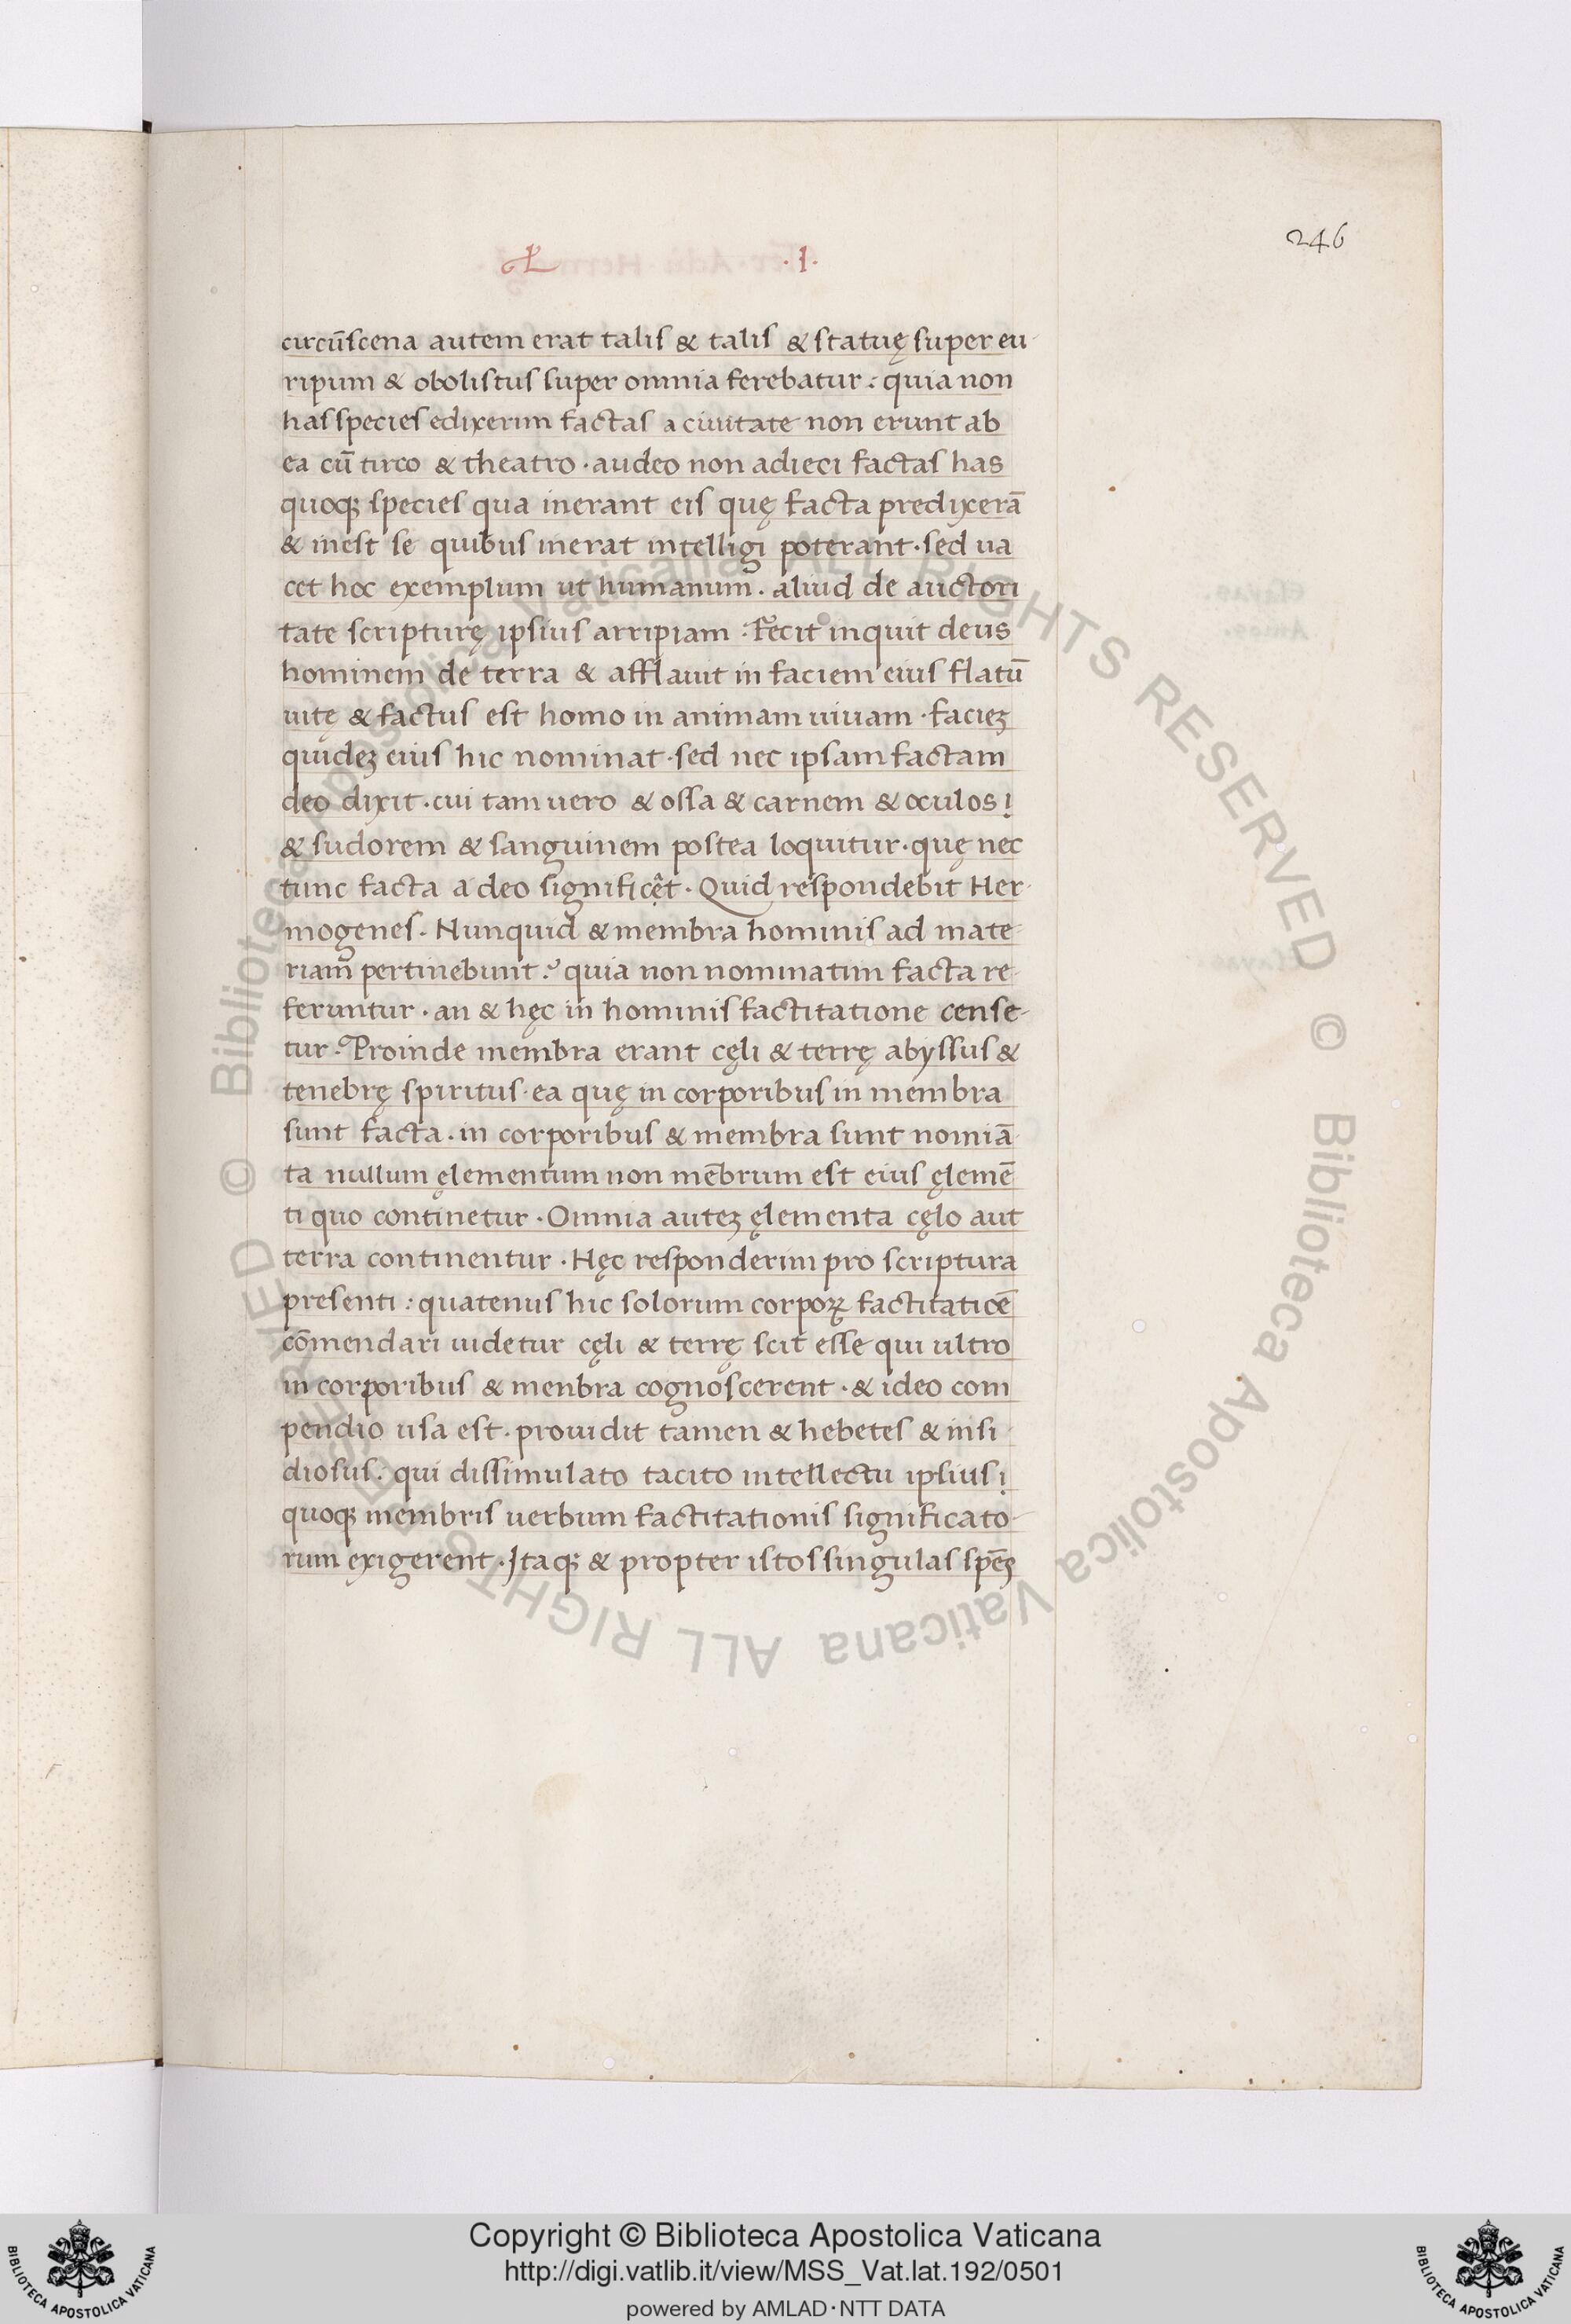 246
L .I.
circūscena autem erat talis & talis & statuę super eu-
ripum & obolistus super omnia ferebatur: quia non
has species edixerim factas a ciuitate non erunt ab
ea cū tirco & theatro · audeo non adieci factas has
quoqꝫ species qua inerant eis quę facta predixerā
& inest se quibus inerat intelligi poterant · sed ua
cet hoc exemplum ut humanum · aliud de auctori
tate scripturę ipsius arripiam : Fecit inquit deus
hominem de terra & afflauit in faciem eius flatū
uitę & factus est homo in animam uiuam · facieꝫ
quideꝫ eius hic nominat · sed nec ipsam factam
deo dixit · cui tam uero & ossa & carnem & oculos!
& sudorem & sanguinem postea loquitur · quę nec
tunc facta a deo significę̂t · Quid respondebit Her-
mogenes · Nunquid & membra hominis ad mate-
riam pertinebunt? quia non nominatim facta re-
feruntur · an & hęc in hominis factitatione cense-
tur · Proinde membra erant cęli & terrę abyssus &
tenebrę spiritus · ea quę in corporibus in membra
sunt facta · in corporibus & membra sunt nomiā-
ta nullum ęlementum non mēbrum est eius ęlemē
ti quo continetur · Omnia auteꝫ ęlementa cęlo aut
terra continentur · Hęc responderim pro scriptura
presenti : quatenus hic solorum corpoꝝ factitaticē
cōmendari uidetur cęli & terrę scit esse qui ultro
in corporibus & menbra cognoscerent · & ideo com
pendio usa est · prouidit tamen & hebetes & insi-
diosus: qui dissimulato tacito intellectu ipsius!
quoqꝫ membris uerbum factitationis significato-
rum exigerent · Itaqꝫ & propter istos singulas spēs
Copyright © Biblioteca Apostolica Vaticana
http://digi.vatlib.it/view/MSS_Vat.lat.192/0501
powered by AMLAD·NTT DATA
BIBLIOTECA APOSTOLICA VATICANA
BIBLIOTECA APOSTOLICA VATICANA
© Biblioteca Apostolica Vaticana ALL RIGHTS RESERVED © Biblioteca Apostolica Vaticana ALL RIGHTS RESERVED